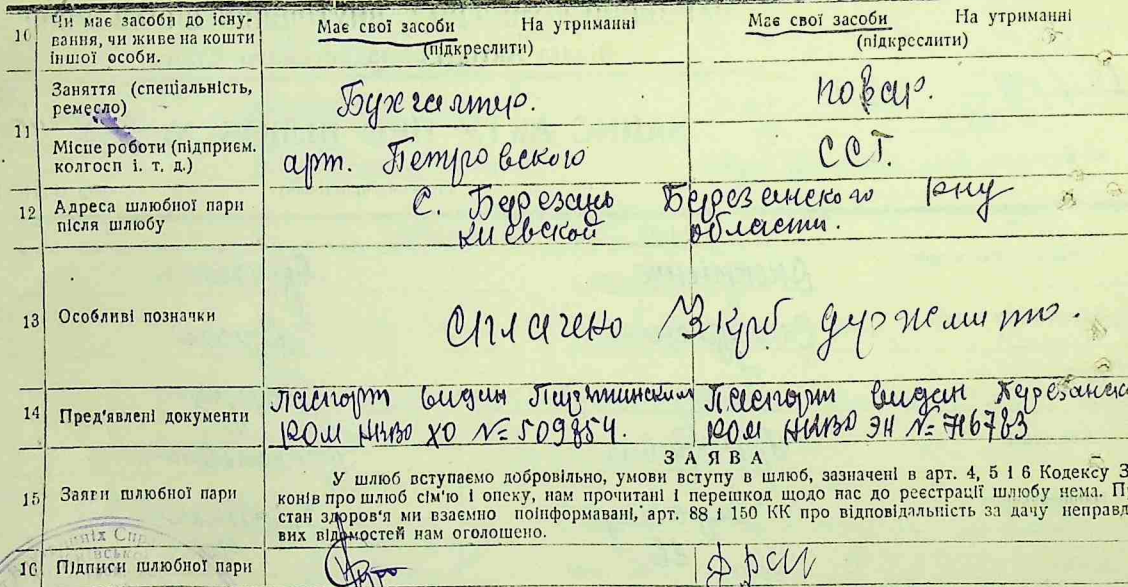 10 Чи має засоби до існу-
вання, чи живе на кошти
іншої особи.
Має свої засоби На утриманні
(підкреслити)
Має свої засоби На утриманні
(підкреслити)
11 Заняття (спеціальність,
ремесло)
Бухгалтир.
повар.
Місце роботи (підприєм.
колгосп і. т. д.)
арт. Петровского
ССТ.
12 Адреса шлюбної пари
після шлюбу
С. Березань Березанского рну
киевской области.
13 Особливі позначки
Сплачено 3 крб держмито.
14 Пред'явлені документи
Паспорт видан
РОМ НКВД ХО №=509854.
Паспорт видан Березанск
РОМ НКВД ЭН №=716783
ЗАЯВА
15 Заяви шлюбної пари
У шлюб вступаємо добровільно, умови вступу в шлюб, зазначені в арт. 4, 5 і 6 Кодексу З
конів про шлюб сім'ю і опеку, нам прочитані і перешкод щодо нас до реєстрації шлюбу нема. П
стан здоров'я ми взаємно поінформавані, арт. 88 і 150 КК про відповідальність за дачу неправд
вих відомостей нам оголошено.
16 Підписи шлюбної пари